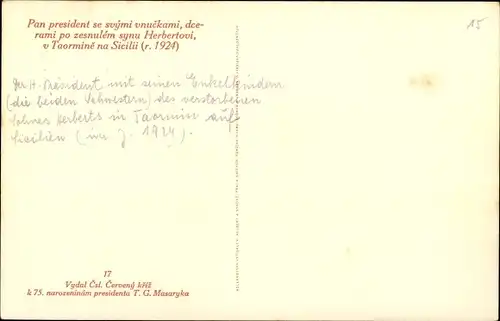 Pan president se svými vnučkami, dce-
rami po zesnulém synu Herbertovi,
v Taormině na Sicilii (r. 1924)
15
Der H. Präsident mit seinen Enkelkindern
(die beiden Schwestern) des verstorbenen
Sohnes Herberts in Taormina auf
Sicilien (im J. 1924).
17
Vydal Čsl. Červený kříž
k 75. narozeninám presidenta T. G. Masaryka